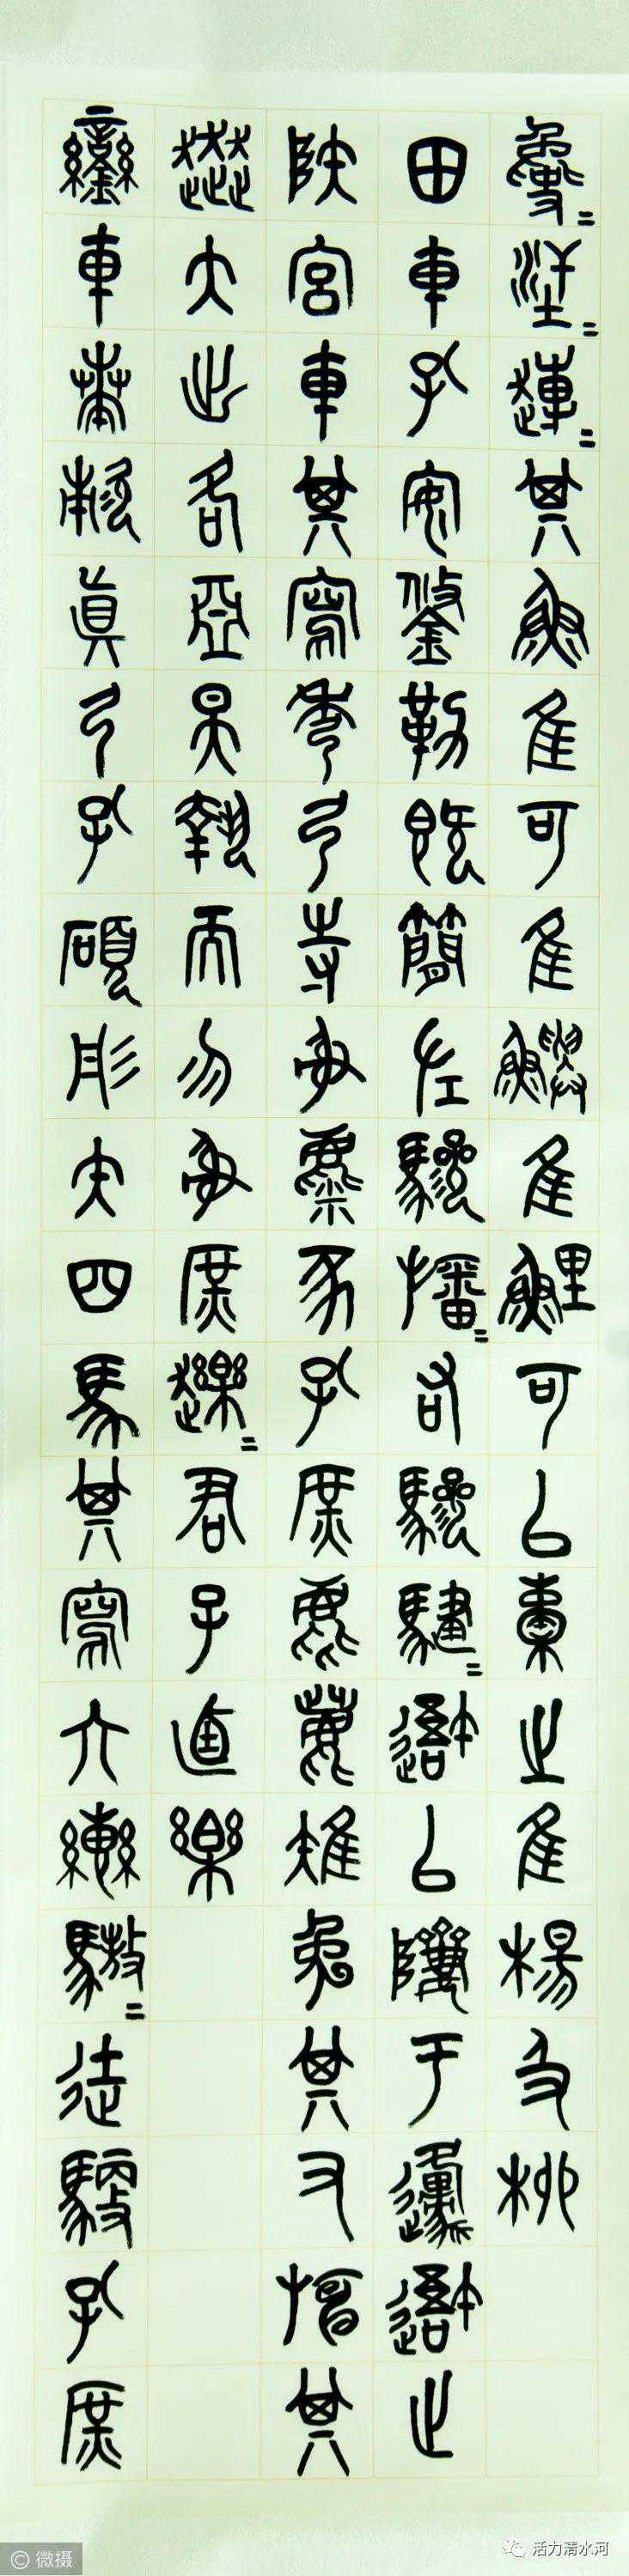 其魚隹可隹鱮隹鯉可㠯橐之隹楊及柳
田車孔安鋚勒既簡左驂旛=右驂騝=㠯隮于邍止
宮車其寫秀弓寺射麋豕孔庶麀鹿雉兔其又其
大出各亞昊執而勿射庶君子逌樂
鑾車𠦪敕真弓孔碩彤矢四馬其寫六轡驁=徒馭孔庶
©微摄
活力清水河